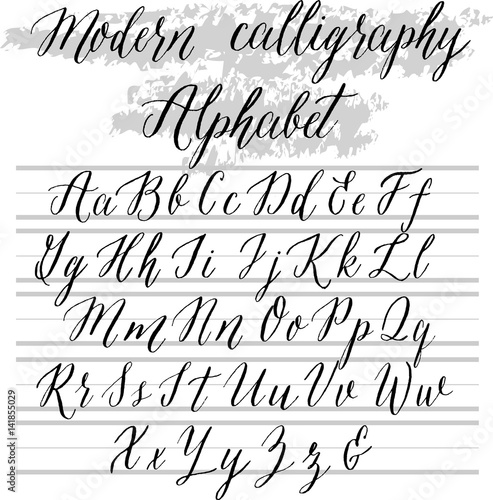 Modern calligraphy
Alphabet
Aa Bb Cc Dd Ee Ff
Gg Hh Ii Jj Kk Ll
Mm Nn Oo Pp Qq
Rr Ss Tt Uu Vv Ww
Xx Yy Zz &
Adobe Stock | #141855029